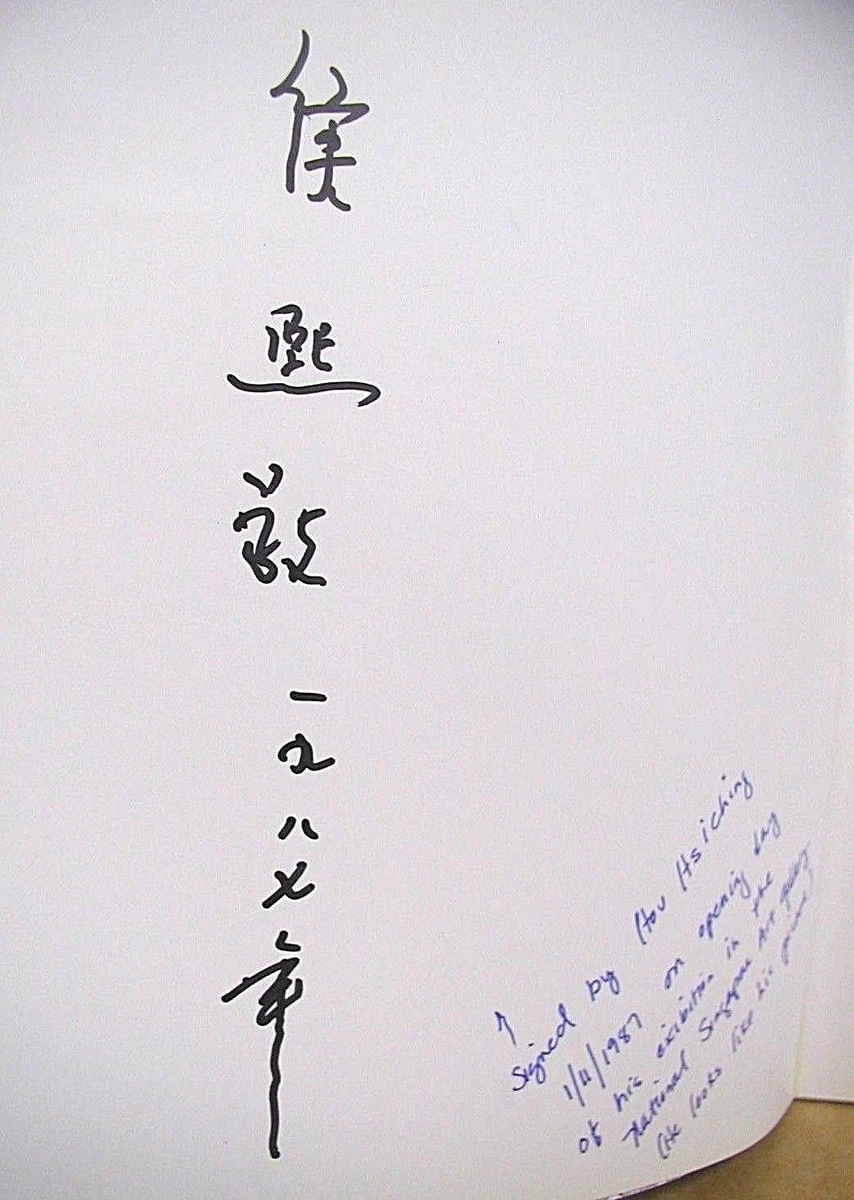 侯熙敬 一九八七年
↑
Signed by Hou Hsiching
1/11/1987 on opening day
of his exibition in the
National Singapore Art Gallery
(He looks like his